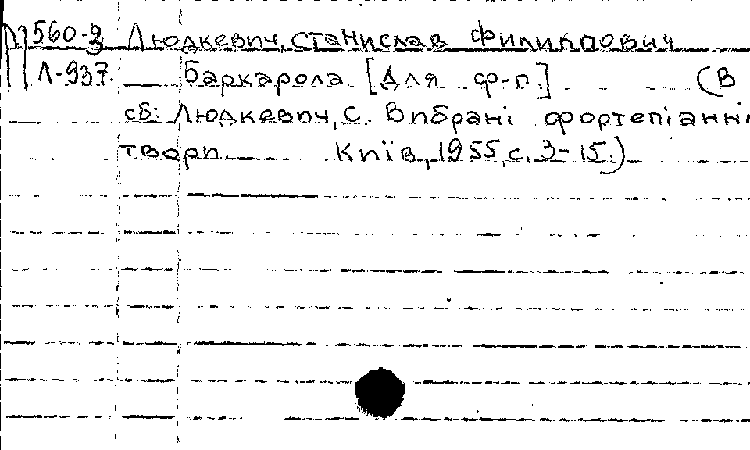 П560-3 Людкевич, Станислав Филиппович
Л-937. Баркарола [Для ф-п.] (В
сб: Людкевич, С. Вибрані фортепіанні
твори. Київ, 1955, с. 3-15.)